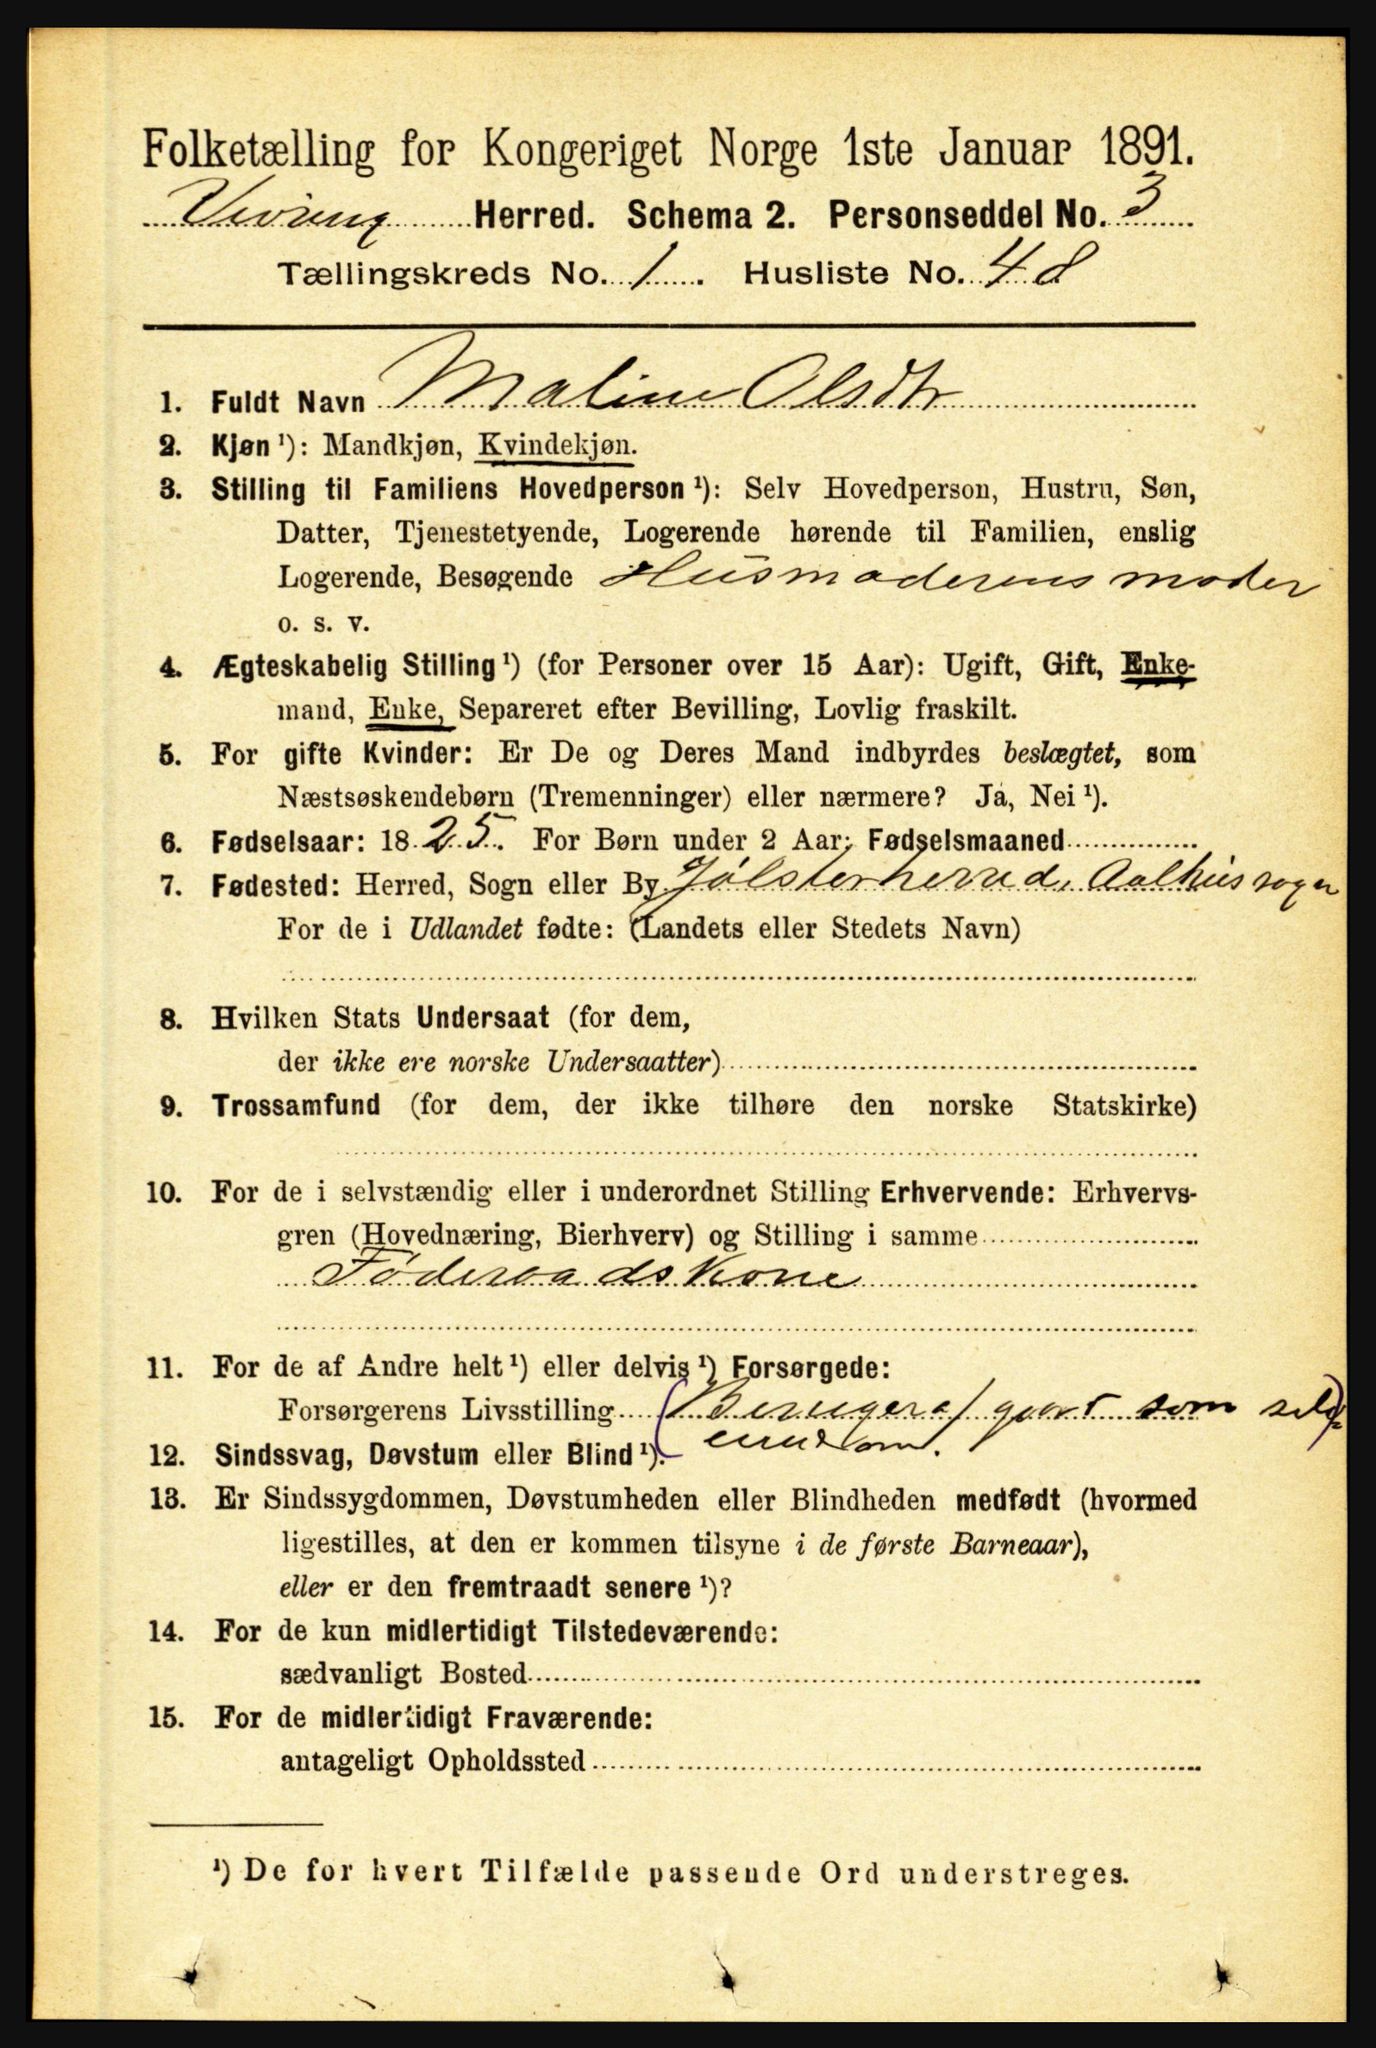 Folketælling for Kongeriget Norge 1ste Januar 1891.
Vevring Herred. Schema 2. Personseddel No. 3
Tællingskreds No. 1. Husliste No. 48
1. Fuldt Navn Maline Olsdtr
2. Kjøn ¹): Mandkjøn, Kvindekjøn.
3. Stilling til Familiens Hovedperson ¹): Selv Hovedperson, Hustru, Søn,
Datter, Tjenestetyende, Logerende hørende til Familien, enslig
Logerende, Besøgende Husmoderens moder
o. s. v.
4. Ægteskabelig Stilling ¹) (for Personer over 15 Aar): Ugift, Gift, Enke-
mand, Enke, Separeret efter Bevilling, Lovlig fraskilt.
5. For gifte Kvinder: Er De og Deres Mand indbyrdes beslægtet, som
Næstsøskendebørn (Tremenninger) eller nærmere? Ja, Nei ¹).
6. Fødselsaar: 1825. For Børn under 2 Aar: Fødselsmaaned
7. Fødested: Herred, Sogn eller By Jølsterherred, Aalhus sogn
For de i Udlandet fødte: (Landets eller Stedets Navn)
8. Hvilken Stats Undersaat (for dem,
der ikke ere norske Undersaatter)
9. Trossamfund (for dem, der ikke tilhøre den norske Statskirke)
10. For de i selvstændig eller i underordnet Stilling Erhvervende: Erhvervs-
gren (Hovednæring, Bierhverv) og Stilling i samme
Føderaadskone
11. For de af Andre helt ¹) eller delvis ¹) Forsørgede:
Forsørgerens Livsstilling (Bruger af gaard som selv=
eiendom.
12. Sindssvag, Døvstum eller Blind ¹).
13. Er Sindssygdommen, Døvstumheden eller Blindheden medfødt (hvormed
ligestilles, at den er kommen tilsyne i de første Barneaar),
eller er den fremtraadt senere ¹)?
14. For de kun midlertidigt Tilstedeværende:
sædvanligt Bosted
15. For de midlertidigt Fraværende:
antageligt Opholdssted
¹) De for hvert Tilfælde passende Ord understreges.